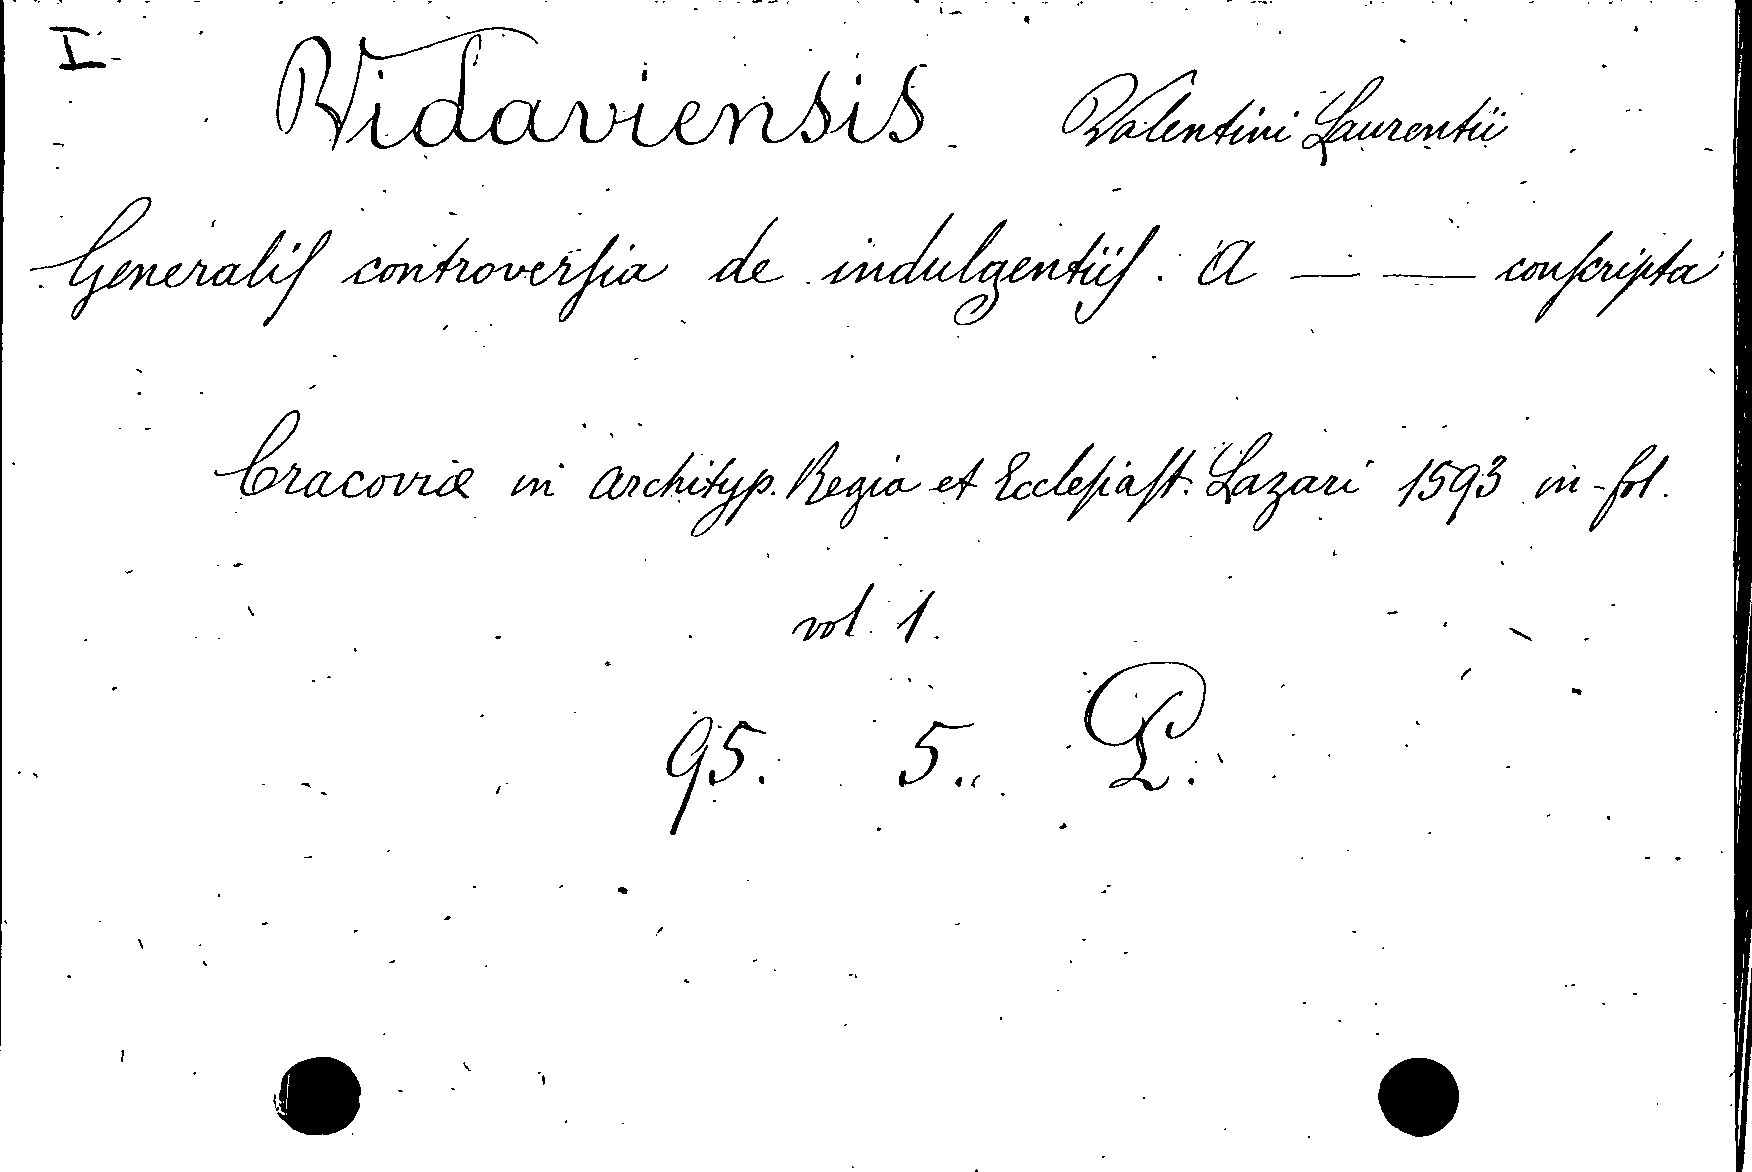 I
Vidaviensis Valentini Laurentii
Generaliſ controverſia de indulgentiiſ. A — — conſcripta
Cracoviæ in archityp. Regia et Eccleſiaſt. Lazari 1593 in-fol.
vol. 1.
95. 5..